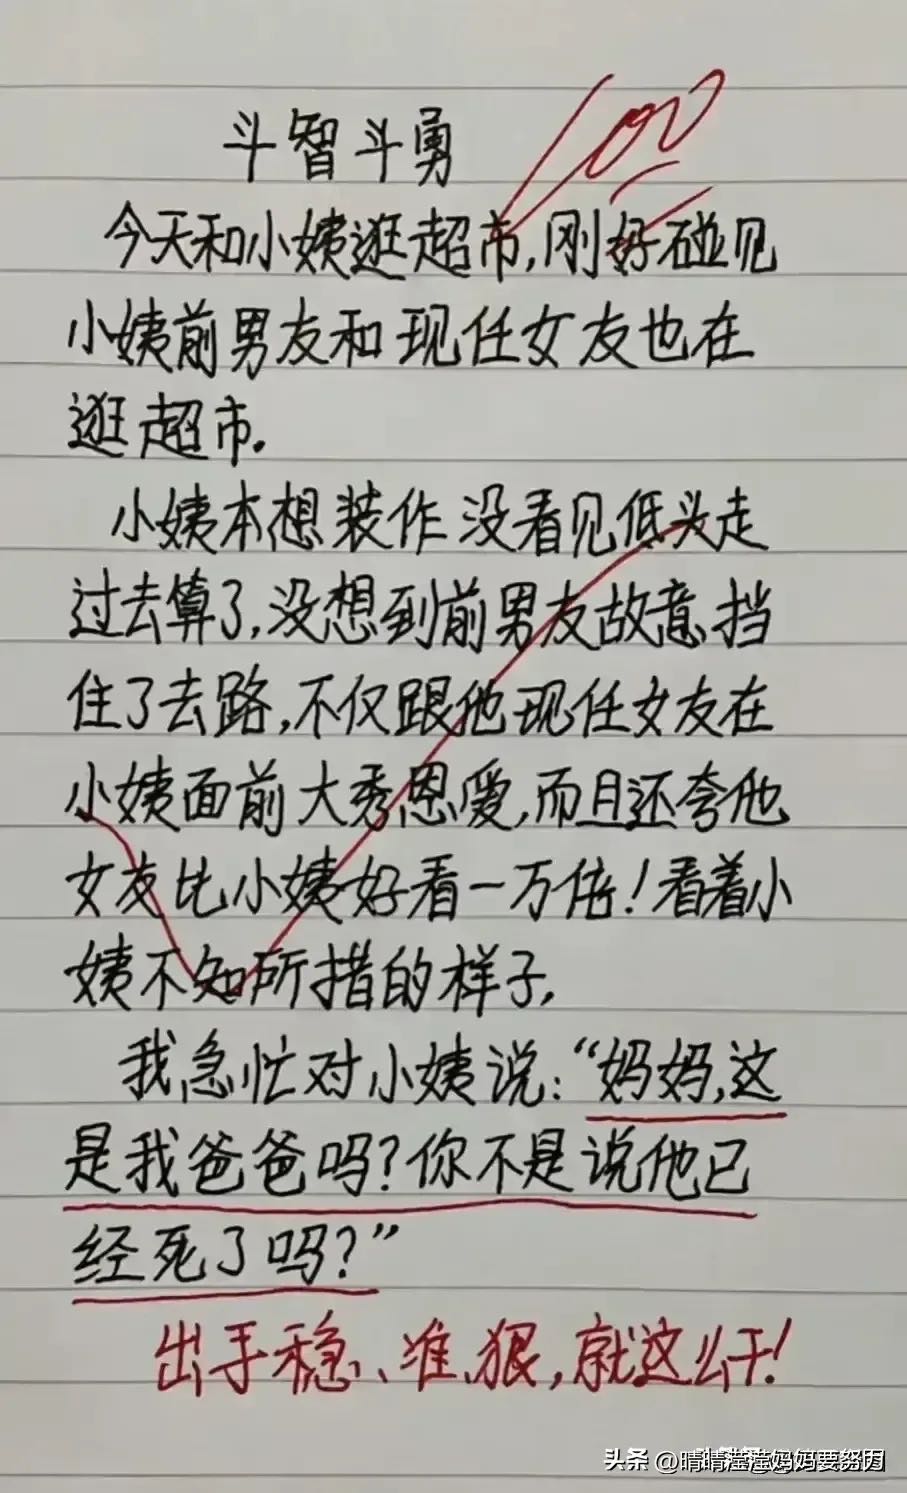 斗智斗勇
100
今天和小姨逛超市,刚好碰见
小姨前男友和现任女友也在
逛超市.
小姨本想装作没看见低头走
过去算了,没想到前男友故意挡
住了去路,不仅跟他现任女友在
小姨面前大秀恩爱,而且还夸他
女友比小姨好看一万倍!看着小
姨不知所措的样子,
我急忙对小姨说:“妈妈,这
是我爸爸吗?你不是说他已
经死了吗?”
出手稳、准、狠,就这么干!
头条 @晴晴滢滢妈妈要努力